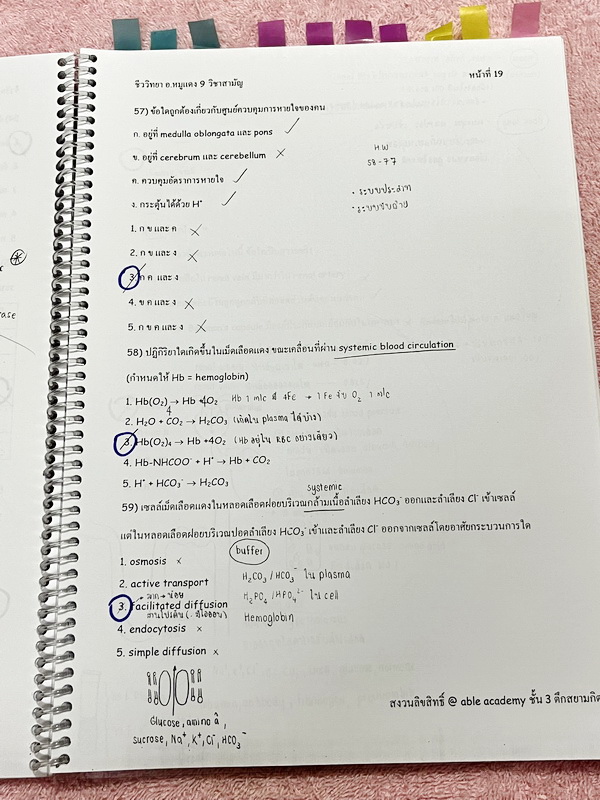 หน้าที่ 19
ชีววิทยา อ.หมูแดง 9 วิชาสามัญ
57) ข้อใดถูกต้องเกี่ยวกับศูนย์ควบคุมการหายใจของคน
ก. อยู่ที่ medulla oblongata และ pons
ข. อยู่ที่ cerebrum และ cerebellum
HW
58-77
ค. ควบคุมอัตราการหายใจ
• ระบบประสาท
ง. กระตุ้นได้ด้วย H⁺
• ระบบขับถ่าย
1. ก ข และ ค
2. ก ข และ ง
3. ก ค และ ง
4. ข ค และ ง
5. ก ข ค และ ง
58) ปฏิกิริยาใดเกิดขึ้นในเม็ดเลือดแดง ขณะเคลื่อนที่ผ่าน systemic blood circulation
(กำหนดให้ Hb = hemoglobin)
1. Hb(O₂) → Hb +4O₂ Hb 1 mlc มี 4Fe → 1 Fe จับ O₂ 1 mlc
4
2. H₂O + CO₂ → H₂CO₃ (เกิดใน plasma ได้บ้าง)
3. Hb(O₂)₄ → Hb +4O₂ (Hb อยู่ใน RBC อย่างเดียว)
4. Hb-NHCOO⁻ + H⁺ → Hb + CO₂
5. H⁺ + HCO₃⁻ → H₂CO₃
systemic
59) เซลล์เม็ดเลือดแดงในหลอดเลือดฝอยบริเวณกล้ามเนื้อลำเลียง HCO₃⁻ ออกและลำเลียง Cl⁻ เข้าเซลล์
แต่ในหลอดเลือดฝอยบริเวณปอดลำเลียง HCO₃⁻ เข้าและลำเลียง Cl⁻ ออกจากเซลล์โดยอาศัยกระบวนการใด
buffer
1. osmosis
H₂CO₃ / HCO₃⁻ ใน plasma
2. active transport
H₂PO₄⁻ / HPO₄²⁻ ใน cell
มาก → น้อย
3. facilitated diffusion
Hemoglobin
4. endocytosis
5. simple diffusion
Glucose, amino a,
sucrose, Na⁺, K⁺, Cl⁻, HCO₃⁻
สงวนลิขสิทธิ์ @ able academy ชั้น 3 ตึกสยามกิต